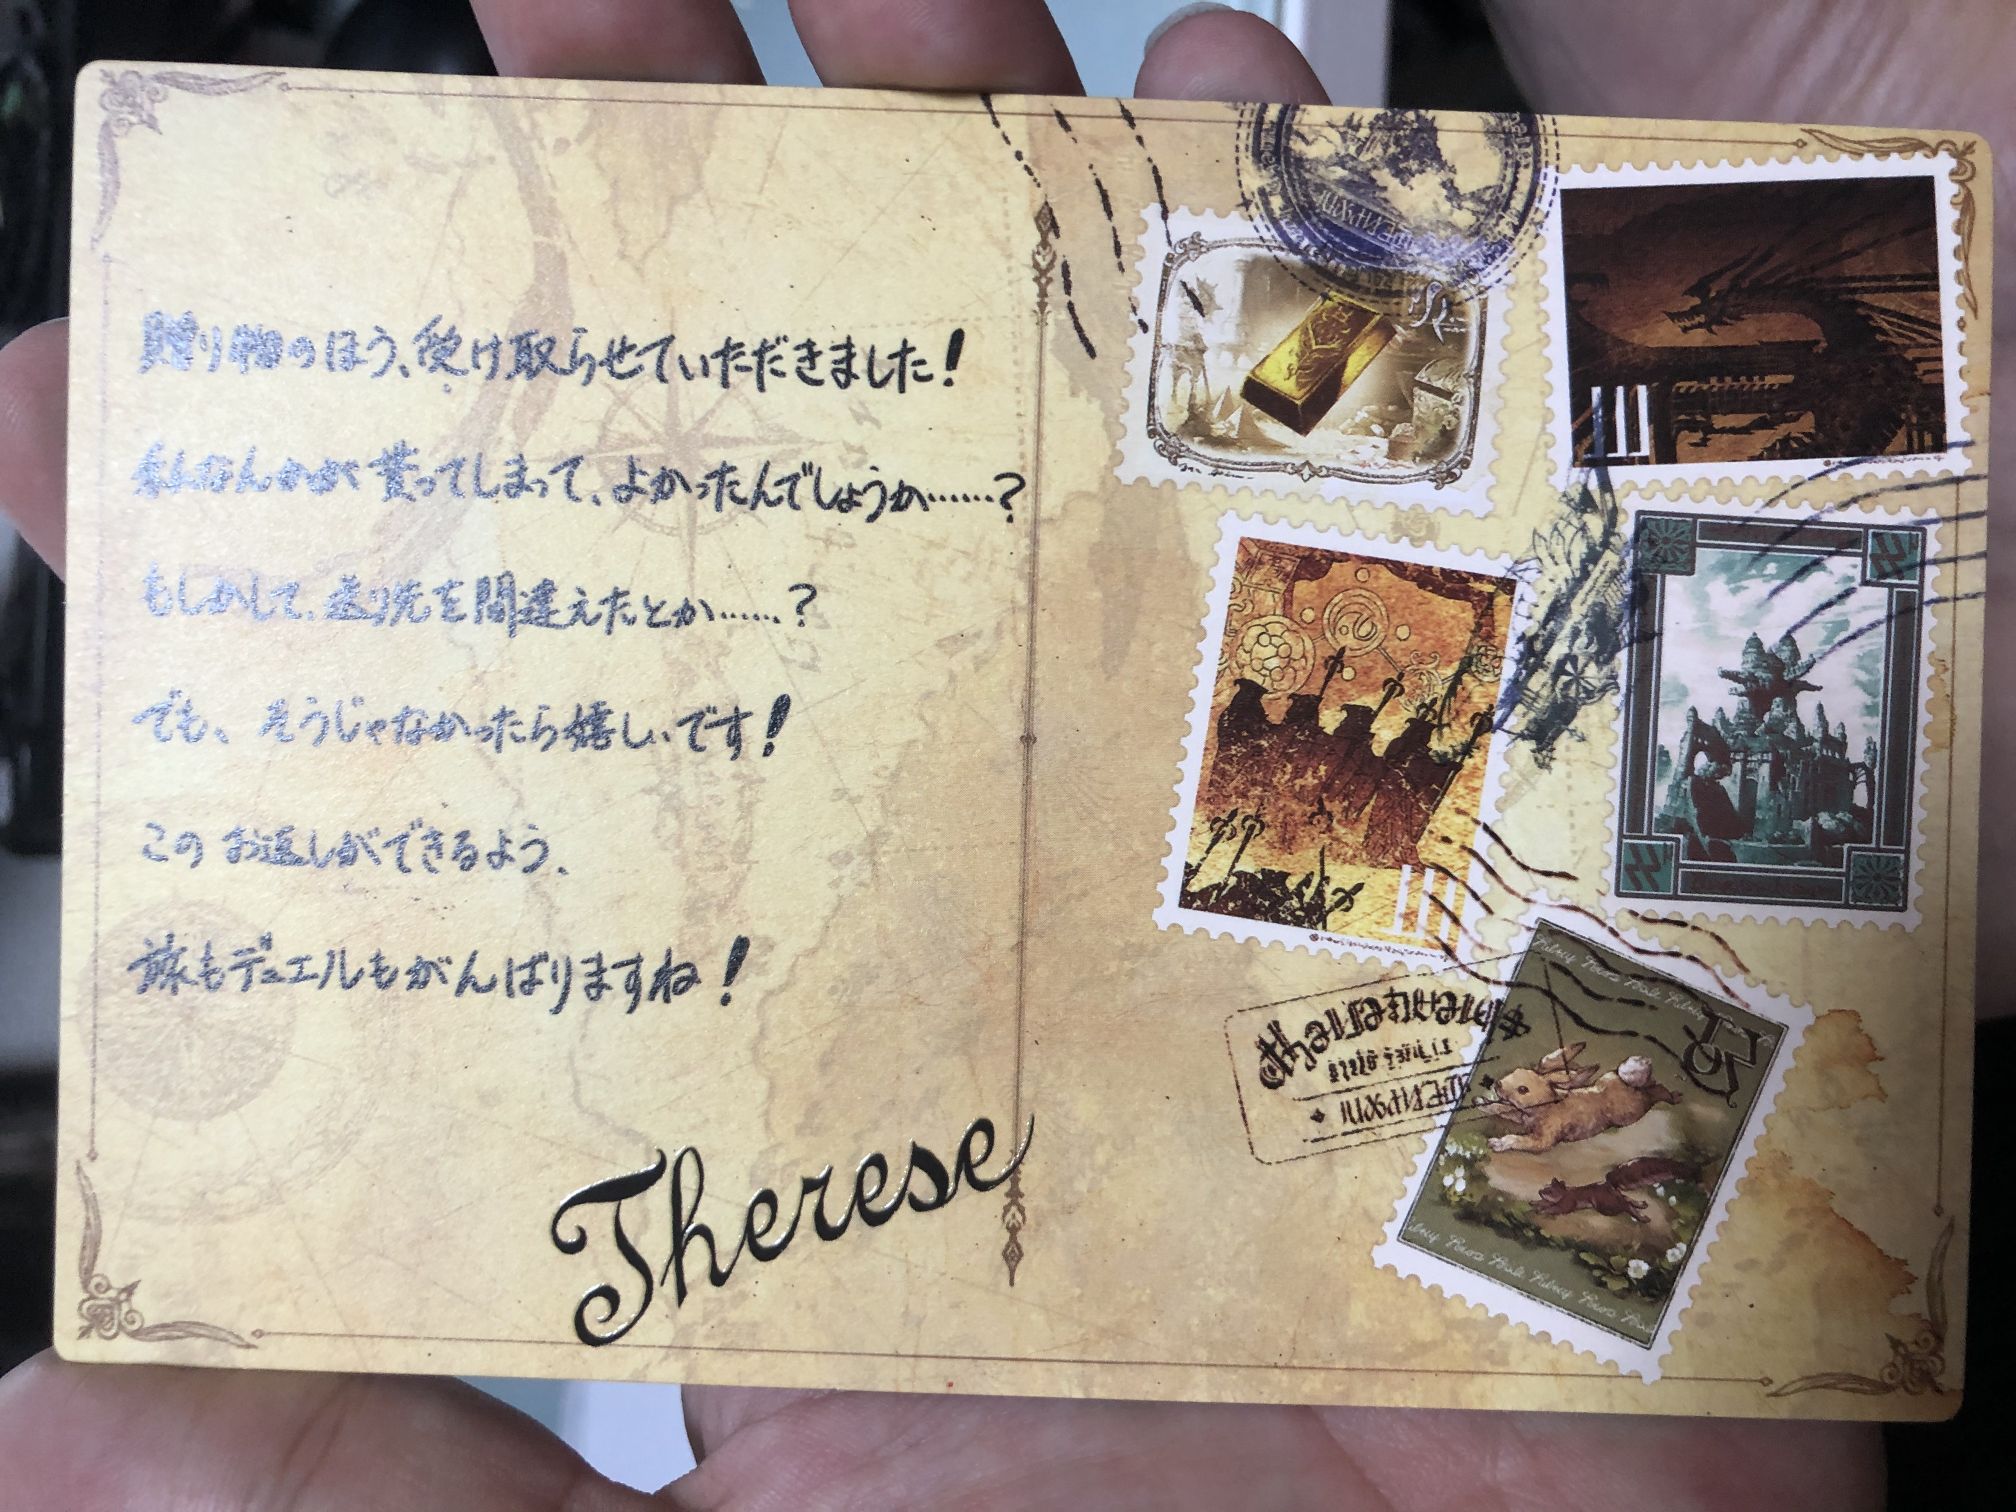 贈り物のほう、受け取らせていただきました!
私なんかが貰ってしまって、よかったんでしょうか……?
もしかして、送り先を間違えたとか……?
でも、そうじゃなかったら嬉しいです!
このお返しができるよう、
旅もデュエルもがんばりますね!
Therese